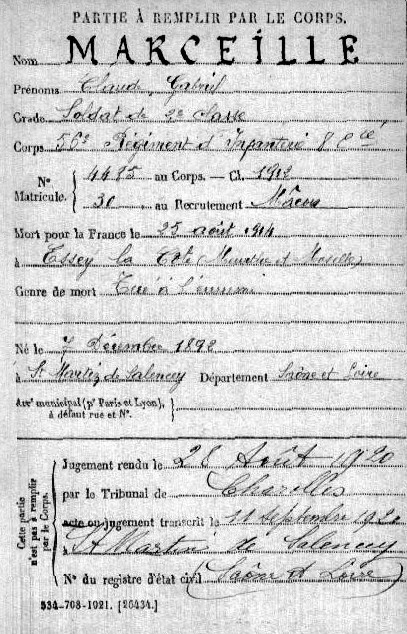 PARTIE À REMPLIR PAR LE CORPS.
Nom MARCEILLE
Prénoms Claude, Gabriel
Grade Soldat de 2e classe
Corps 56e Régiment d'Infanterie 8e Cie
N° Matricule. { 4485 au Corps. — Cl. 1912
30 au Recrutement Mâcon
Mort pour la France le 25 août 1914
à Essey la Côte (Meurthe et Moselle)
Genre de mort Tué à l'ennemi
Né le 7 Décembre 1892
à St Martin de Salencey Département Saône et Loire
Arrt municipal (pr Paris et Lyon), à défaut rue et N°. {
Cette partie n'est pas à remplir par le Corps.
Jugement rendu le 28 Août 1920
par le Tribunal de Charolles
acte ou jugement transcrit le 11 septembre 1920
à St Martin de Salencey
N° du registre d'état civil (Saône et Loire)
534-708-1921. [26434.]